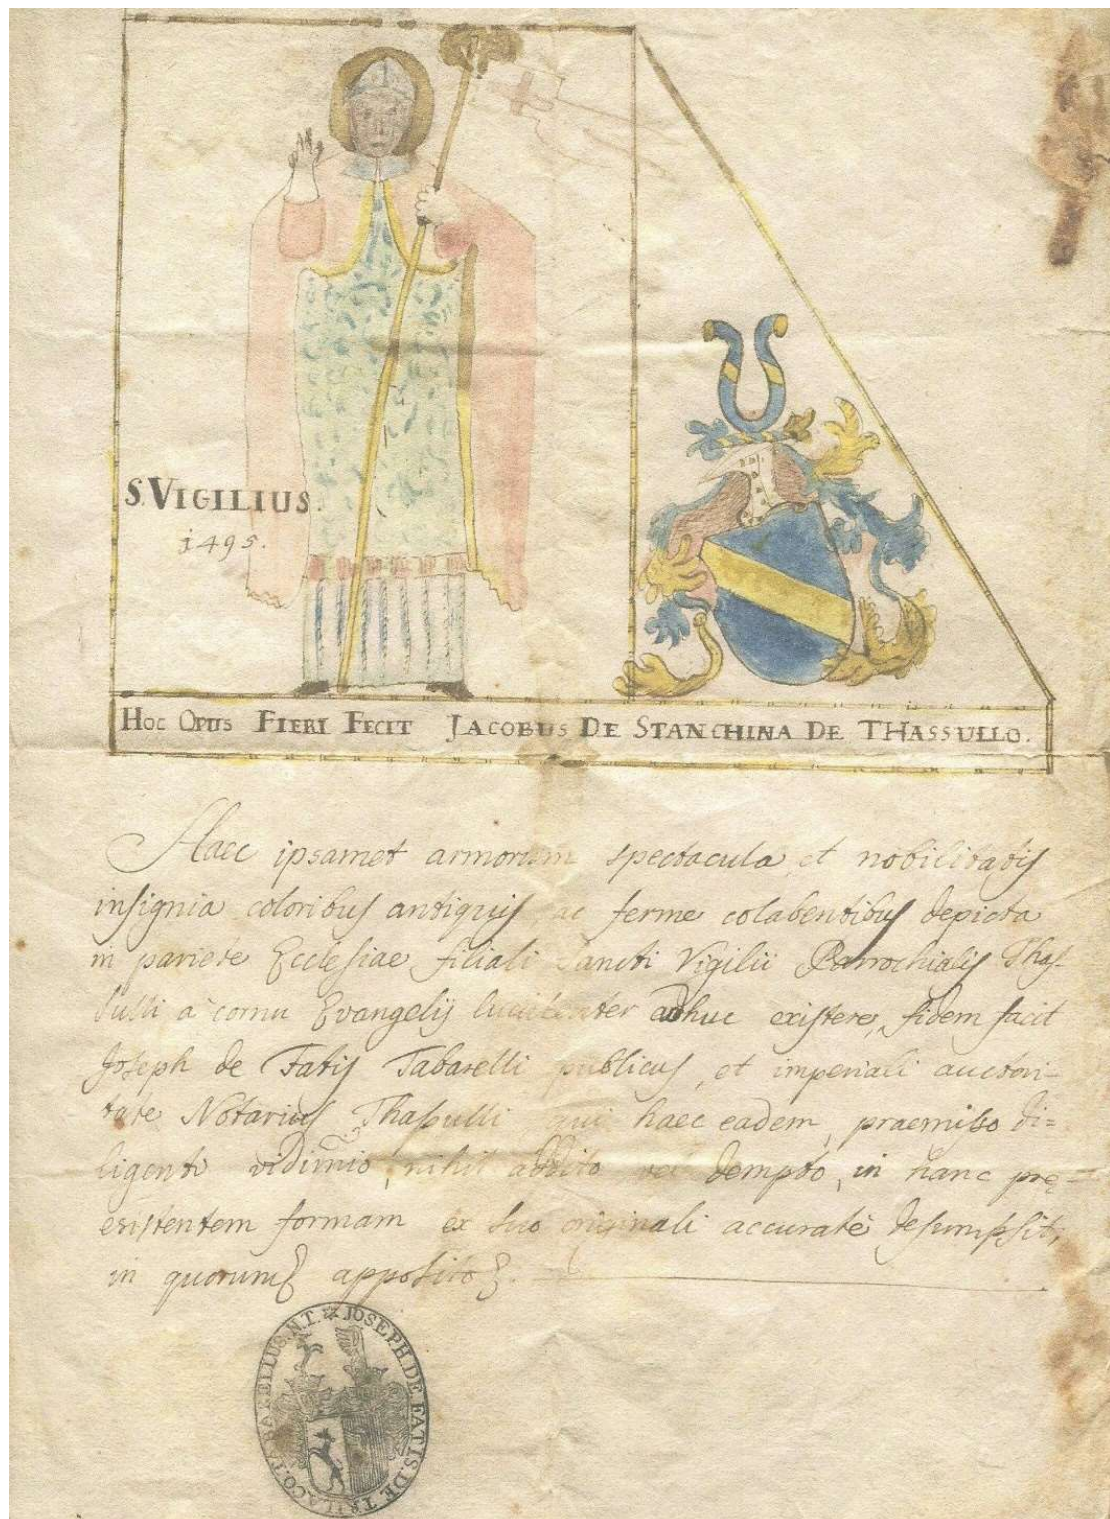 S. VIGILIUS.
1495.
HOC OPUS FIERI FECIT JACOBUS DE STANCHINA DE THASSULLO.
Haec ipsamet armorum spectacula, et nobilitatis
insignia coloribus antiquis, ac ferme colabentibus depicta
in pariete Ecclesiae filiali Sancti Vigilii Parrochialis Thas-
sulli à cornu Evangelij luculenter adhuc existere, fidem facit
Joseph de Fatis Tabarelli publicus, et imperiali auctori-
tate Notarius Thassulli qui haec eadem, praemisso di=
ligenti vidimio, nihil addito vel dempto, in hanc prę=
existentem formam ex suo originali accuratè desumpsit,
in quorum apposito
JOSEPH. DE. FATIS. DE. TRILACO. TABARELLUS. N. T.